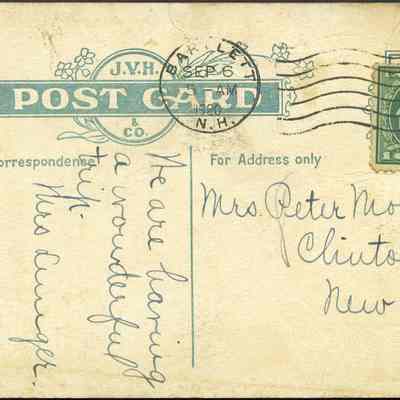 J.V.H.
& CO.
POST CARD
BARTLETT
SEP 6
AM
N.H.
Correspondence
For Address only
We are having
a wonderful
trip.
Mrs
Mrs. Peter Mo
Clinto
New
1